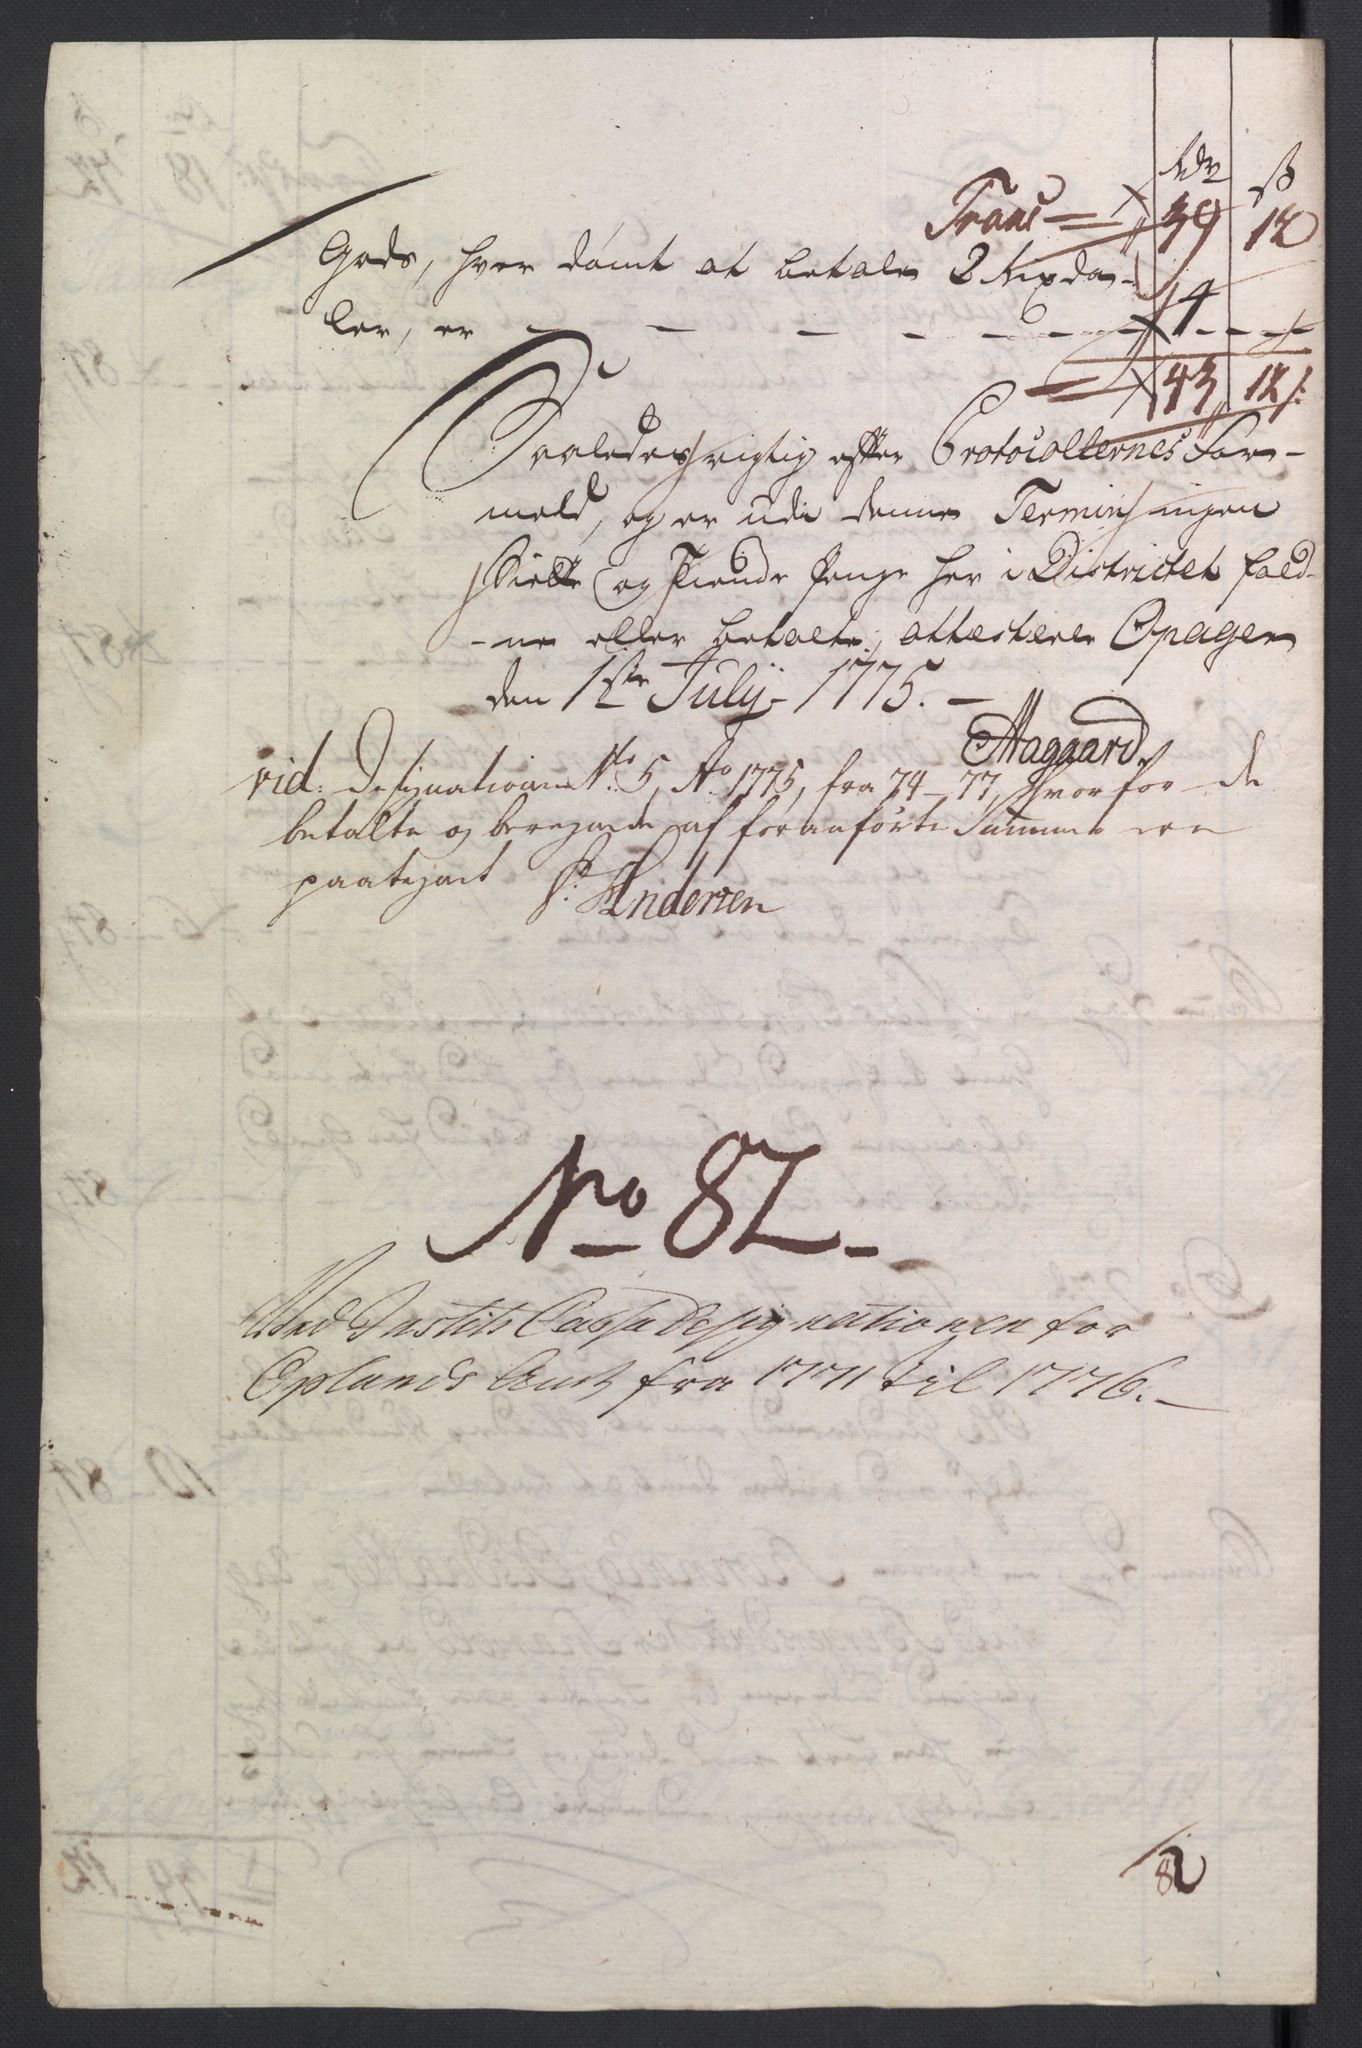 Rdr ß
Trans = 39 12
Gods, hver dømt at betale 2 Rixda-
ler, er - - - - - - 4 - - -
= 43 12 ß:
Saaledes rigtig efter Protocollernes For-
meld, og er udi denne Termin ingen
Sielle og Tiende Penge her i Districtet fald-
ne eller betalte, attesterer Opager
den 1ste Julÿ 1775. -
Aagaard.
vid: Designationen No: 5, Ao 1775, fra 74 - 77, hvorfor de
betalte og beregnede af foranførte Summe ere
paategnet P: Andersen
No 82.
Med Justits Cassa Designationen for
Oplands Amt fra 1771 til 1776. -
82